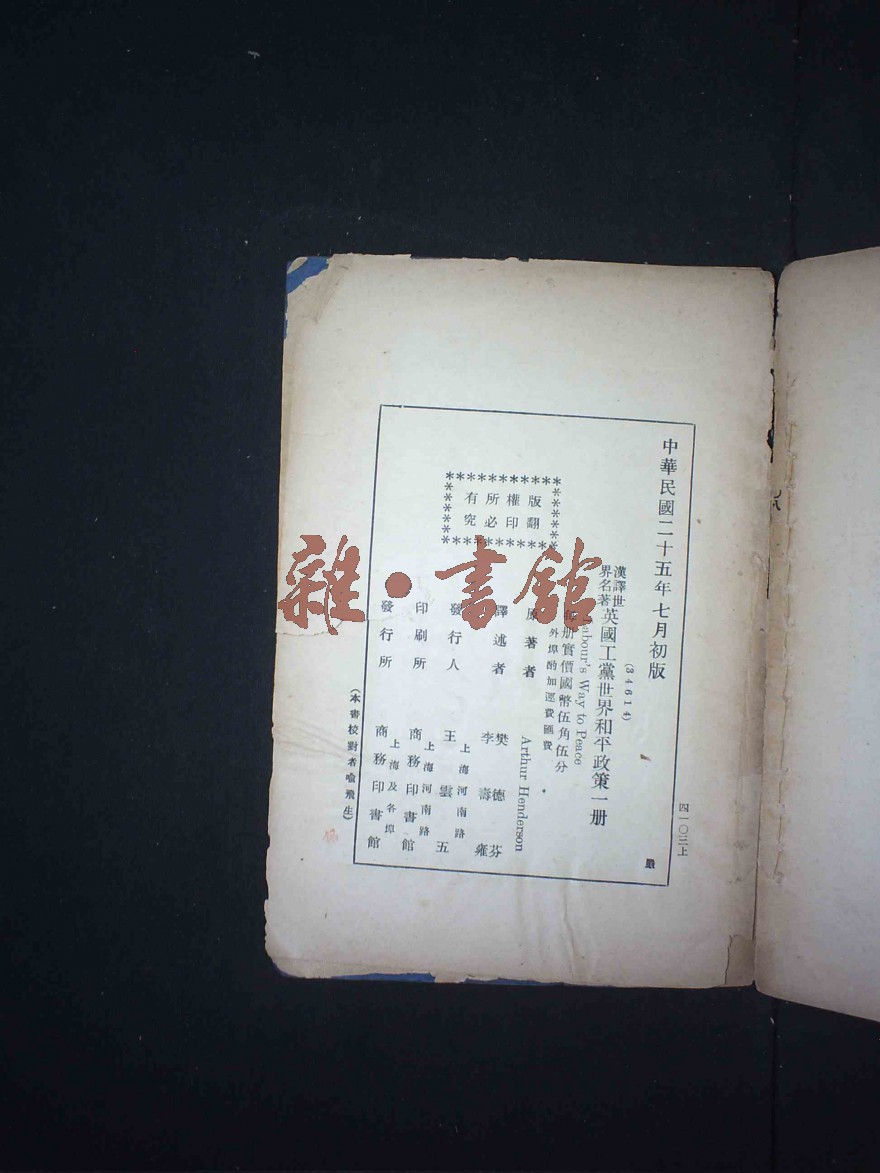 四一〇三上
中華民國二十五年七月初版
嚴
(34614)
漢譯世界名著 英國工黨世界和平政策一册
Labour's Way to Peace
每册實價國幣伍角伍分
外埠酌加運費匯費
版權所有
翻印必究
原著者 Arthur Henderson
譯述者 樊德芬 李壽雍
發行人 王雲五
上海河南路
印刷所 商務印書館
上海河南路
發行所 商務印書館
上海及各埠
(本書校對者喻飛生)
雜·書館